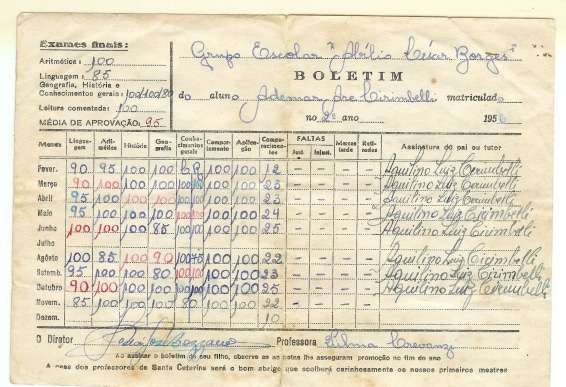 Exames finais:
Aritmética: 100
Linguagem: 85
Geografia, História e
Conhecimentos gerais: 100/100/80
Leitura comentada: 100
MÉDIA DE APROVAÇÃO: 95
Grupo Escolar "Abílio César Borges"
BOLETIM
do aluno Ademar José Cirimbelli matriculado
no 2º ano 1956
Meses Linguagem Aritmética História Geografia Conhecimentos gerais Comportamento Aplicação Comparecimentos FALTAS Just. Injust. Marcas tarde Retiradas Assinatura do pai ou tutor
Fever. 90 95 100 100 100 100 12 - - - - Aquilino Luiz Cirimbelli
Março 90 100 100 100 100 100 100 23 - - - - Aquilino Luiz Cirimbelli
Abril 95 100 100 100 100 100 100 23 - - - - Aquilino Luiz Cirimbelli
Maio 95 100 100 100 100 100 100 24 - - - - Aquilino Luiz Cirimbelli
Junho 100 100 100 85 100 100 100 25 - - - - Aquilino Luiz Cirimbelli
Julho
Agôsto 100 85 100 90 100 100 22 - - - - Aquilino Luiz Cirimbelli
Setemb. 95 100 100 80 100 100 100 23 - - - - Aquilino Luiz Cirimbelli
Outubro 90 100 100 100 100 100 100 25 - - - - Aquilino Luiz Cirimbelli
Novem. 85 100 100 100 80 100 100 22 - - - -
Dezem. 10
O Diretor Professora Hilma
Ao assinar o boletim de seu filho, observe se as notas lhe asseguram promoção no fim do ano
A casa dos professores de Santa Catarina será o bom abrigo que acolherá carinhosamente os nossos primeiros mestres